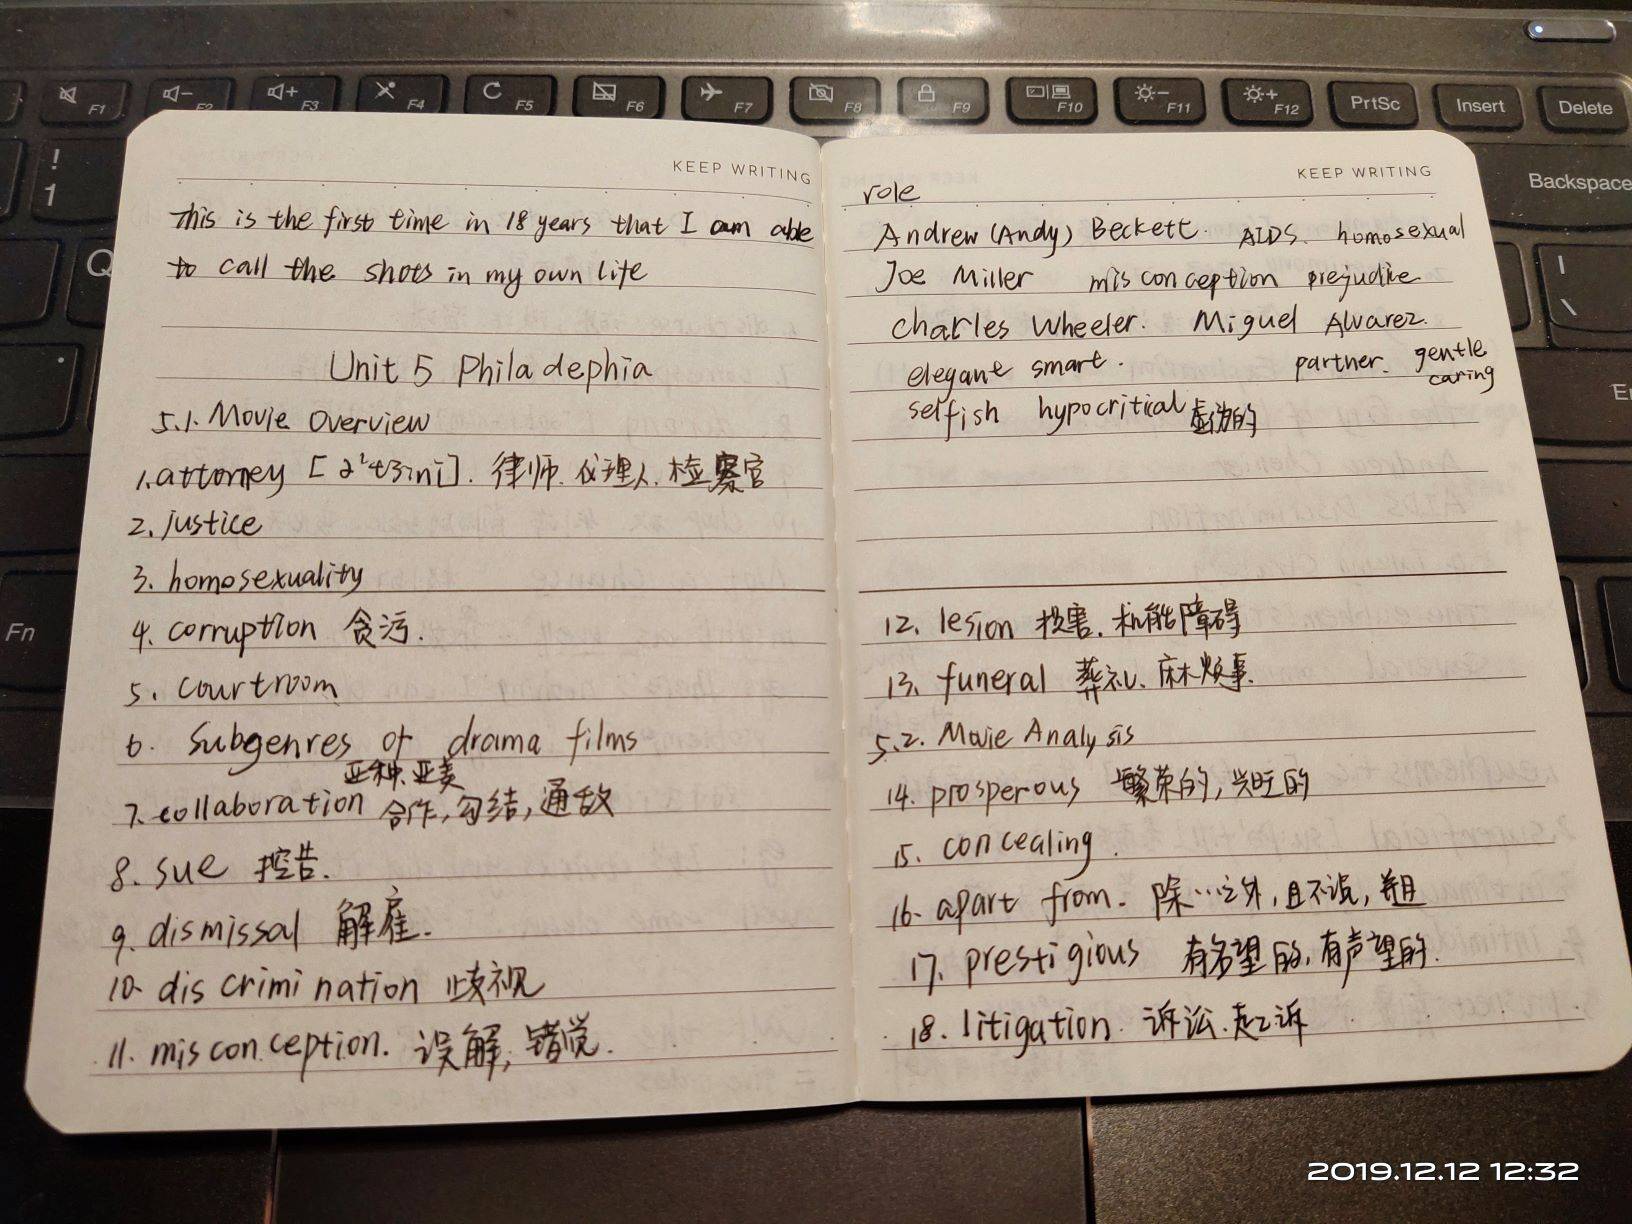 F1
F2
F3
F4
F5
F6
F7
F8
F9
F10
F11
F12
PrtSc
Insert
Delete
!
1
Backspace
Q
Fn
|
\
KEEP WRITING
This is the first time in 18 years that I am able
to call the shots in my own life
Unit 5 Philadephia
5.1. Movie Overview
1. attorney [ə'tɜ:ni]. 律师、代理人、检察官
2. justice
3. homosexuality
4. corruption 贪污.
5. courtroom
6. subgenres of drama films
亚种、亚类
7. collaboration 合作, 勾结, 通敌
8. sue 控告.
9. dismissal 解雇.
10. discrimination 歧视
11. misconception. 误解, 错觉.
KEEP WRITING
role
Andrew (Andy) Beckett. AIDS. homosexual
Joe Miller misconception prejudice
Charles Wheeler. Miguel Alvarez.
elegant smart. partner. gentle
caring
selfish hypocritical 虚伪的
12. lesion 损害. 机能障碍
13. funeral 葬礼、麻烦事.
5.2. Movie Analysis
14. prosperous 繁荣的, 兴旺的
15. concealing.
16. apart from. 除…之外, 且不说,
17. prestigious 有名望的, 有声望的.
18. litigation. 诉讼. 起诉
2019.12.12 12:32